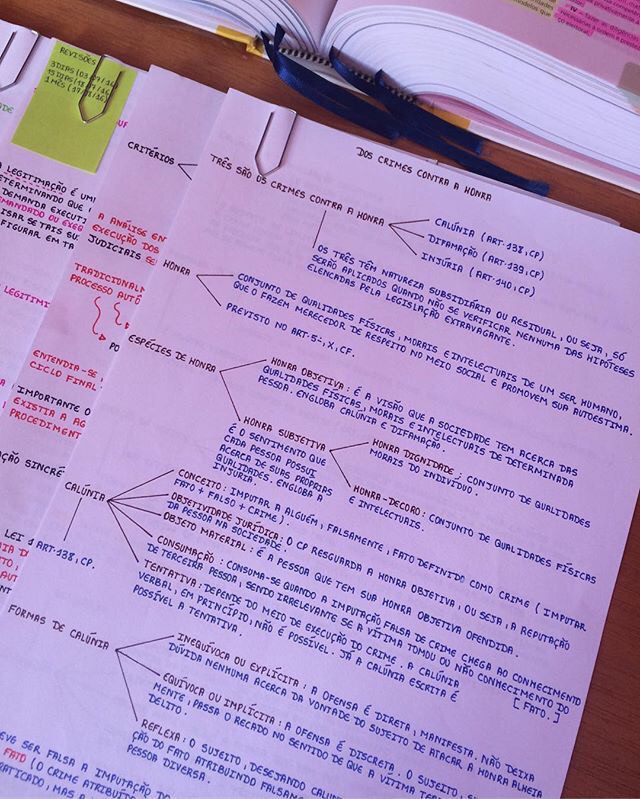 REVISÕES
3 DIAS (03/07/16)
1 MÊS (17/08/16)
CRITÉRIOS
A LEGITIMAÇÃO É UM
DETERMINANDO QUE
DEMANDA EXECUTI
EMANDADO OU EXEQ
ISAR SE TAIS SU
FIGURAR EM TA
LEGITIMI
A ANÁLISE EN
EXECUÇÃO DOS
JUDICIAIS SE
TRADICIONALM
PROCESSO AUTÔ
PO
ENTENDIA-SE
CICLO FINAL
IMPORTANTE O
EXISTIA A AG
PROCEDIMENT
AÇÃO SINCRÉ
LEI 11
DOS CRIMES CONTRA A HONRA
TRÊS SÃO OS CRIMES CONTRA A HONRA
CALÚNIA (ART. 138, CP)
DIFAMAÇÃO (ART. 139, CP)
INJÚRIA (ART. 140, CP)
OS TRÊS TÊM NATUREZA SUBSIDIÁRIA OU RESIDUAL, OU SEJA, SÓ
SERÃO APLICADOS QUANDO NÃO SE VERIFICAR NENHUMA DAS HIPÓTESES
ELENCADAS PELA LEGISLAÇÃO EXTRAVAGANTE.
HONRA
CONJUNTO DE QUALIDADES FÍSICAS, MORAIS E INTELECTUAIS DE UM SER HUMANO,
QUE O FAZEM MERECEDOR DE RESPEITO NO MEIO SOCIAL E PROMOVEM SUA AUTOESTIMA.
PREVISTO NO ART. 5º, X, CF.
ESPÉCIES DE HONRA
HONRA OBJETIVA: É A VISÃO QUE A SOCIEDADE TEM ACERCA DAS
QUALIDADES FÍSICAS, MORAIS E INTELECTUAIS DE DETERMINADA
PESSOA. ENGLOBA CALÚNIA E DIFAMAÇÃO.
HONRA SUBJETIVA
É O SENTIMENTO QUE
CADA PESSOA POSSUI
ACERCA DE SUAS PRÓPRIAS
QUALIDADES. ENGLOBA A
INJÚRIA.
HONRA DIGNIDADE: CONJUNTO DE QUALIDADES
MORAIS DO INDIVÍDUO.
HONRA-DECORO: CONJUNTO DE QUALIDADES FÍSICAS
E INTELECTUAIS.
CALÚNIA
ART. 138, CP.
CONCEITO: IMPUTAR A ALGUÉM, FALSAMENTE, FATO DEFINIDO COMO CRIME (IMPUTAR
FATO + FALSO + CRIME).
OBJETIVIDADE JURÍDICA: O CP RESGUARDA A HONRA OBJETIVA, OU SEJA, A REPUTAÇÃO
DA PESSOA NA SOCIEDADE.
OBJETO MATERIAL: É A PESSOA QUE TEM SUA HONRA OBJETIVA OFENDIDA.
CONSUMAÇÃO: CONSUMA-SE QUANDO A IMPUTAÇÃO FALSA DE CRIME CHEGA AO CONHECIMENTO
DE TERCEIRA PESSOA, SENDO IRRELEVANTE SE A VÍTIMA TOMOU OU NÃO CONHECIMENTO DO
[FATO.]
TENTATIVA: DEPENDE DO MEIO DE EXECUÇÃO DO CRIME. A CALÚNIA
VERBAL, EM PRINCÍPIO, NÃO É POSSÍVEL. JÁ A CALÚNIA ESCRITA É
POSSÍVEL A TENTATIVA.
FORMAS DE CALÚNIA
INEQUÍVOCA OU EXPLÍCITA: A OFENSA É DIRETA, MANIFESTA. NÃO DEIXA
DÚVIDA NENHUMA ACERCA DA VONTADE DO SUJEITO DE ATACAR A HONRA ALHEIA
EQUÍVOCA OU IMPLÍCITA: A OFENSA É DISCRETA. O SUJEITO, SU
MENTE, PASSA O RECADO NO SENTIDO DE QUE A VÍTIMA TERIA
DELITO.
REFLEXA: O SUJEITO, DESEJANDO CALUN
ÇÃO DO FATO ATRIBUINDO FALSAM
PESSOA DIVERSA.
EVE SER FALSA A IMPUTAÇÃO DO
FATO (O CRIME ATRIBUÍ
RATICADO, MAS A